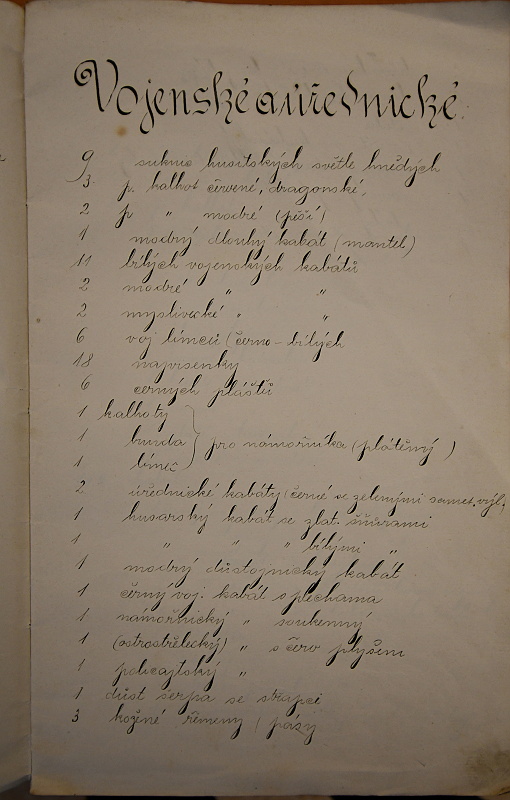 Vojenské a úřednické.
9 sukno husitských světle hnědých
3 p. kalhot červené, dragonské,
2 p " modré (pěší)
1 modrý dlouhý kabát (mantel)
11 bílých vojenských kabátů
2 modré " "
2 myslivecké " "
6 voj límců (černo-bílých
18 
6 černých pláštů
1 kalhoty
1 bunda } pro námořníka (plátěný)
1 límec
2 úřednické kabáty (černé se zelenými samet. výl.
1 husarský kabát se zlat. šňůrami
1 " " " bílými "
1 modrý důstojnický kabát
1 černý voj. kabát s plechama
1 námořnický " soukenný
1 (ostrostřelecký) " s červ plyšem
1 policajtský "
1 důst šerpa se střapci
3 kožené řemeny / pásy